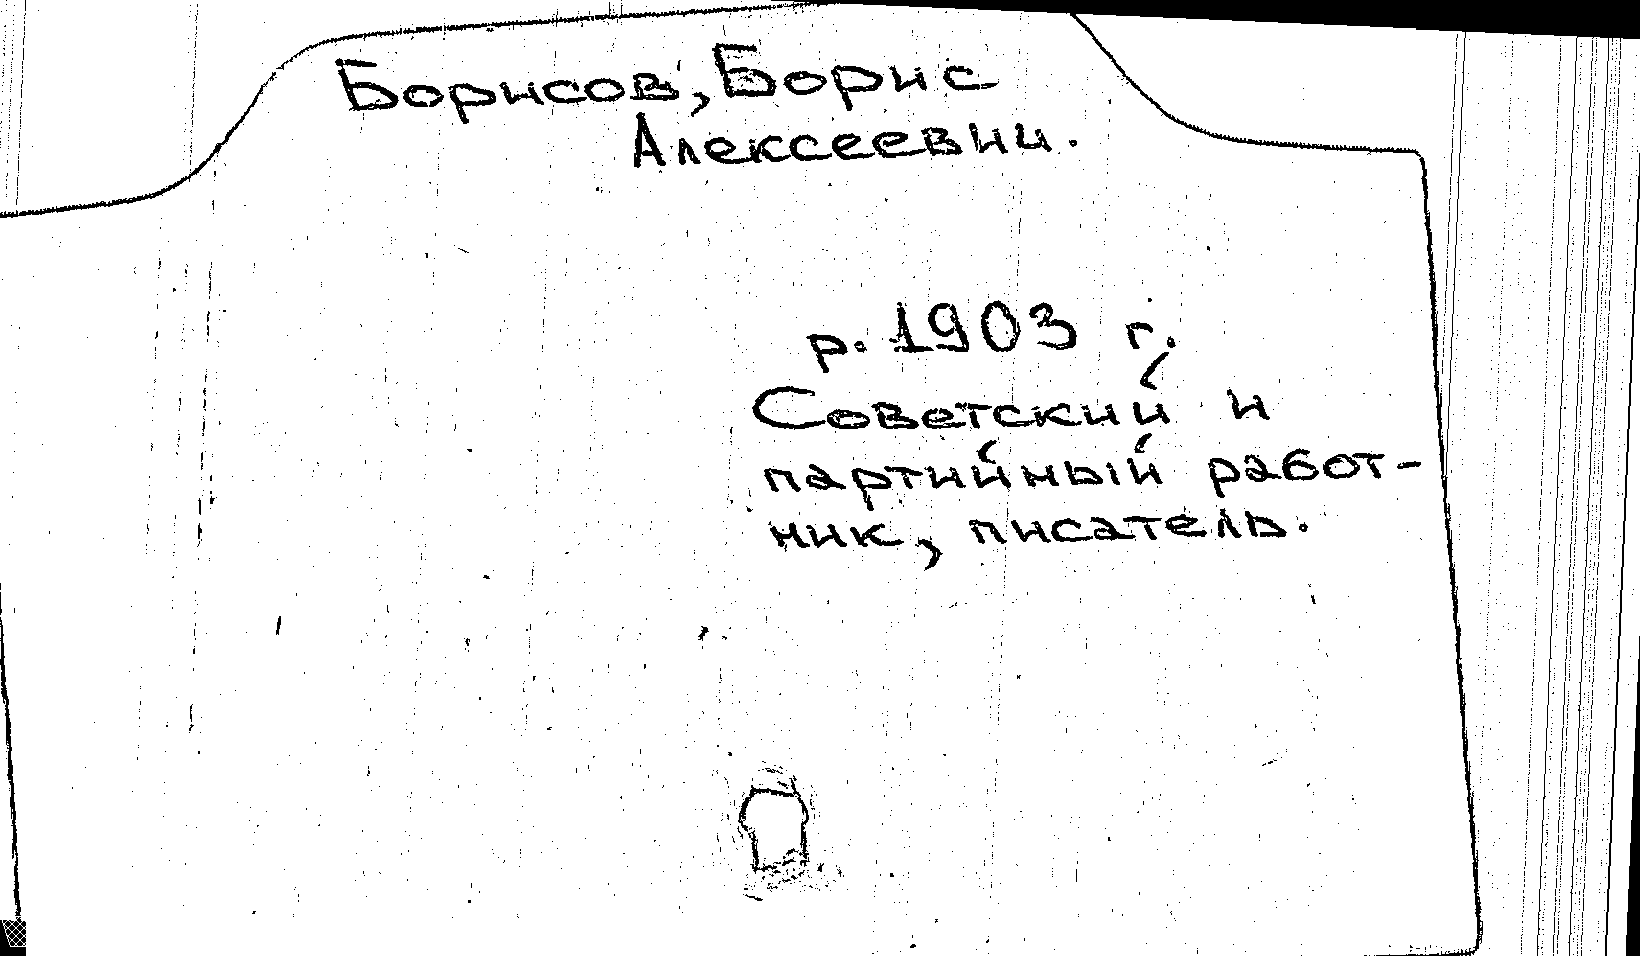 Борисов, Борис
Алексеевич.
р. 1903 г.
Советский и
партийный работ-
ник, писатель.